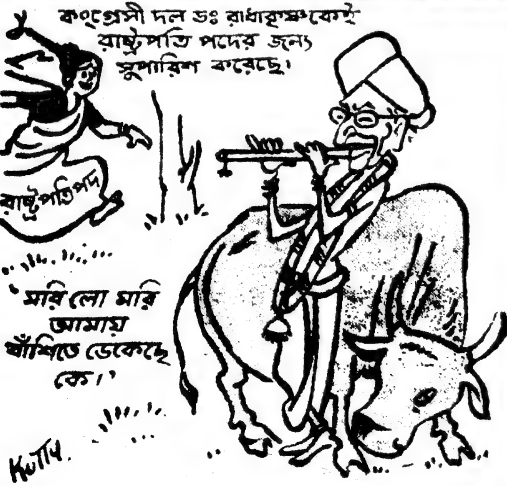 কংগ্রেসী দল ডঃ রাধাকৃষ্ণকেই
রাষ্ট্রপতি পদের জন্যে
সুপারিশ করেছে।
রাষ্ট্রপতিপদ
'মরি লো মরি
আমায়
বাঁশিতে ডেকেছে
কে।'
KUTTY.